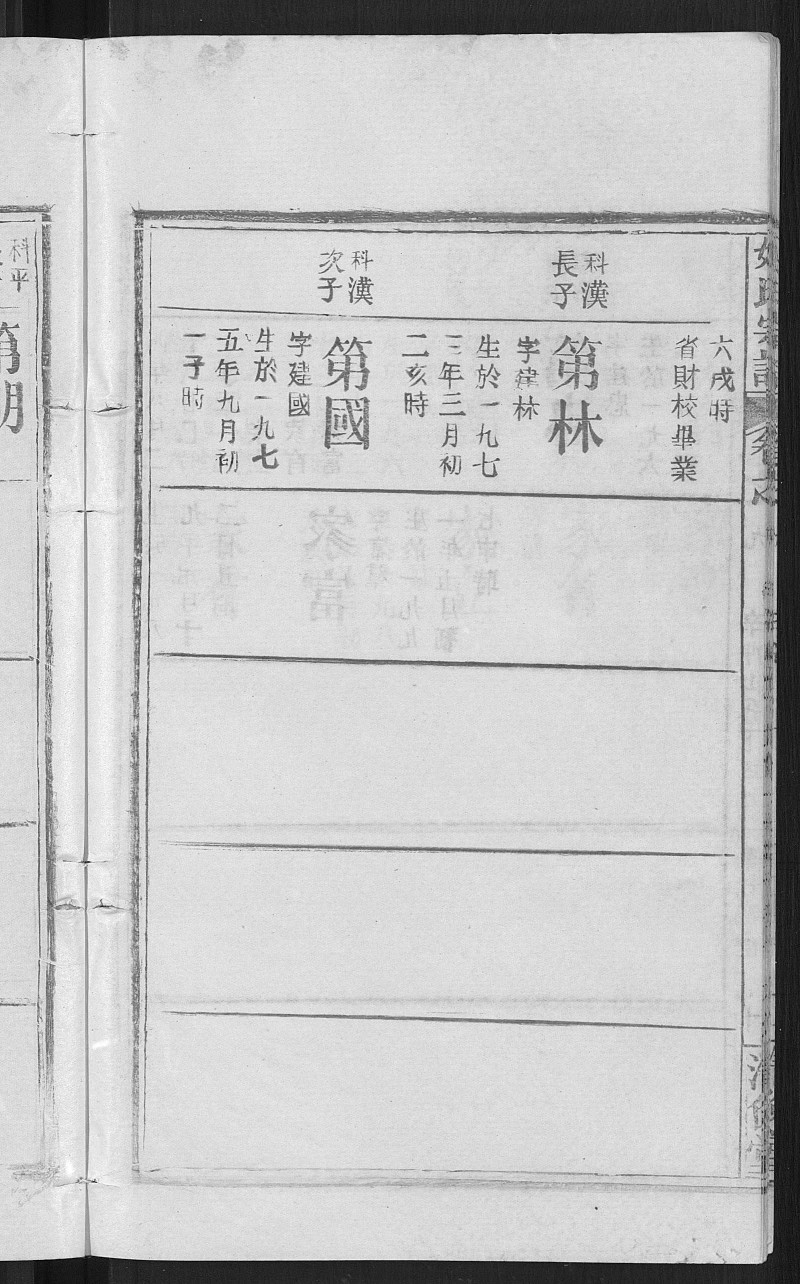 六戌時
省財校畢業
科漢
長子
第林
字建林
生於一九七
三年三月初
二亥時
科漢
次子
第國
字建國
生於一九七
五年九月初
一子時
科平